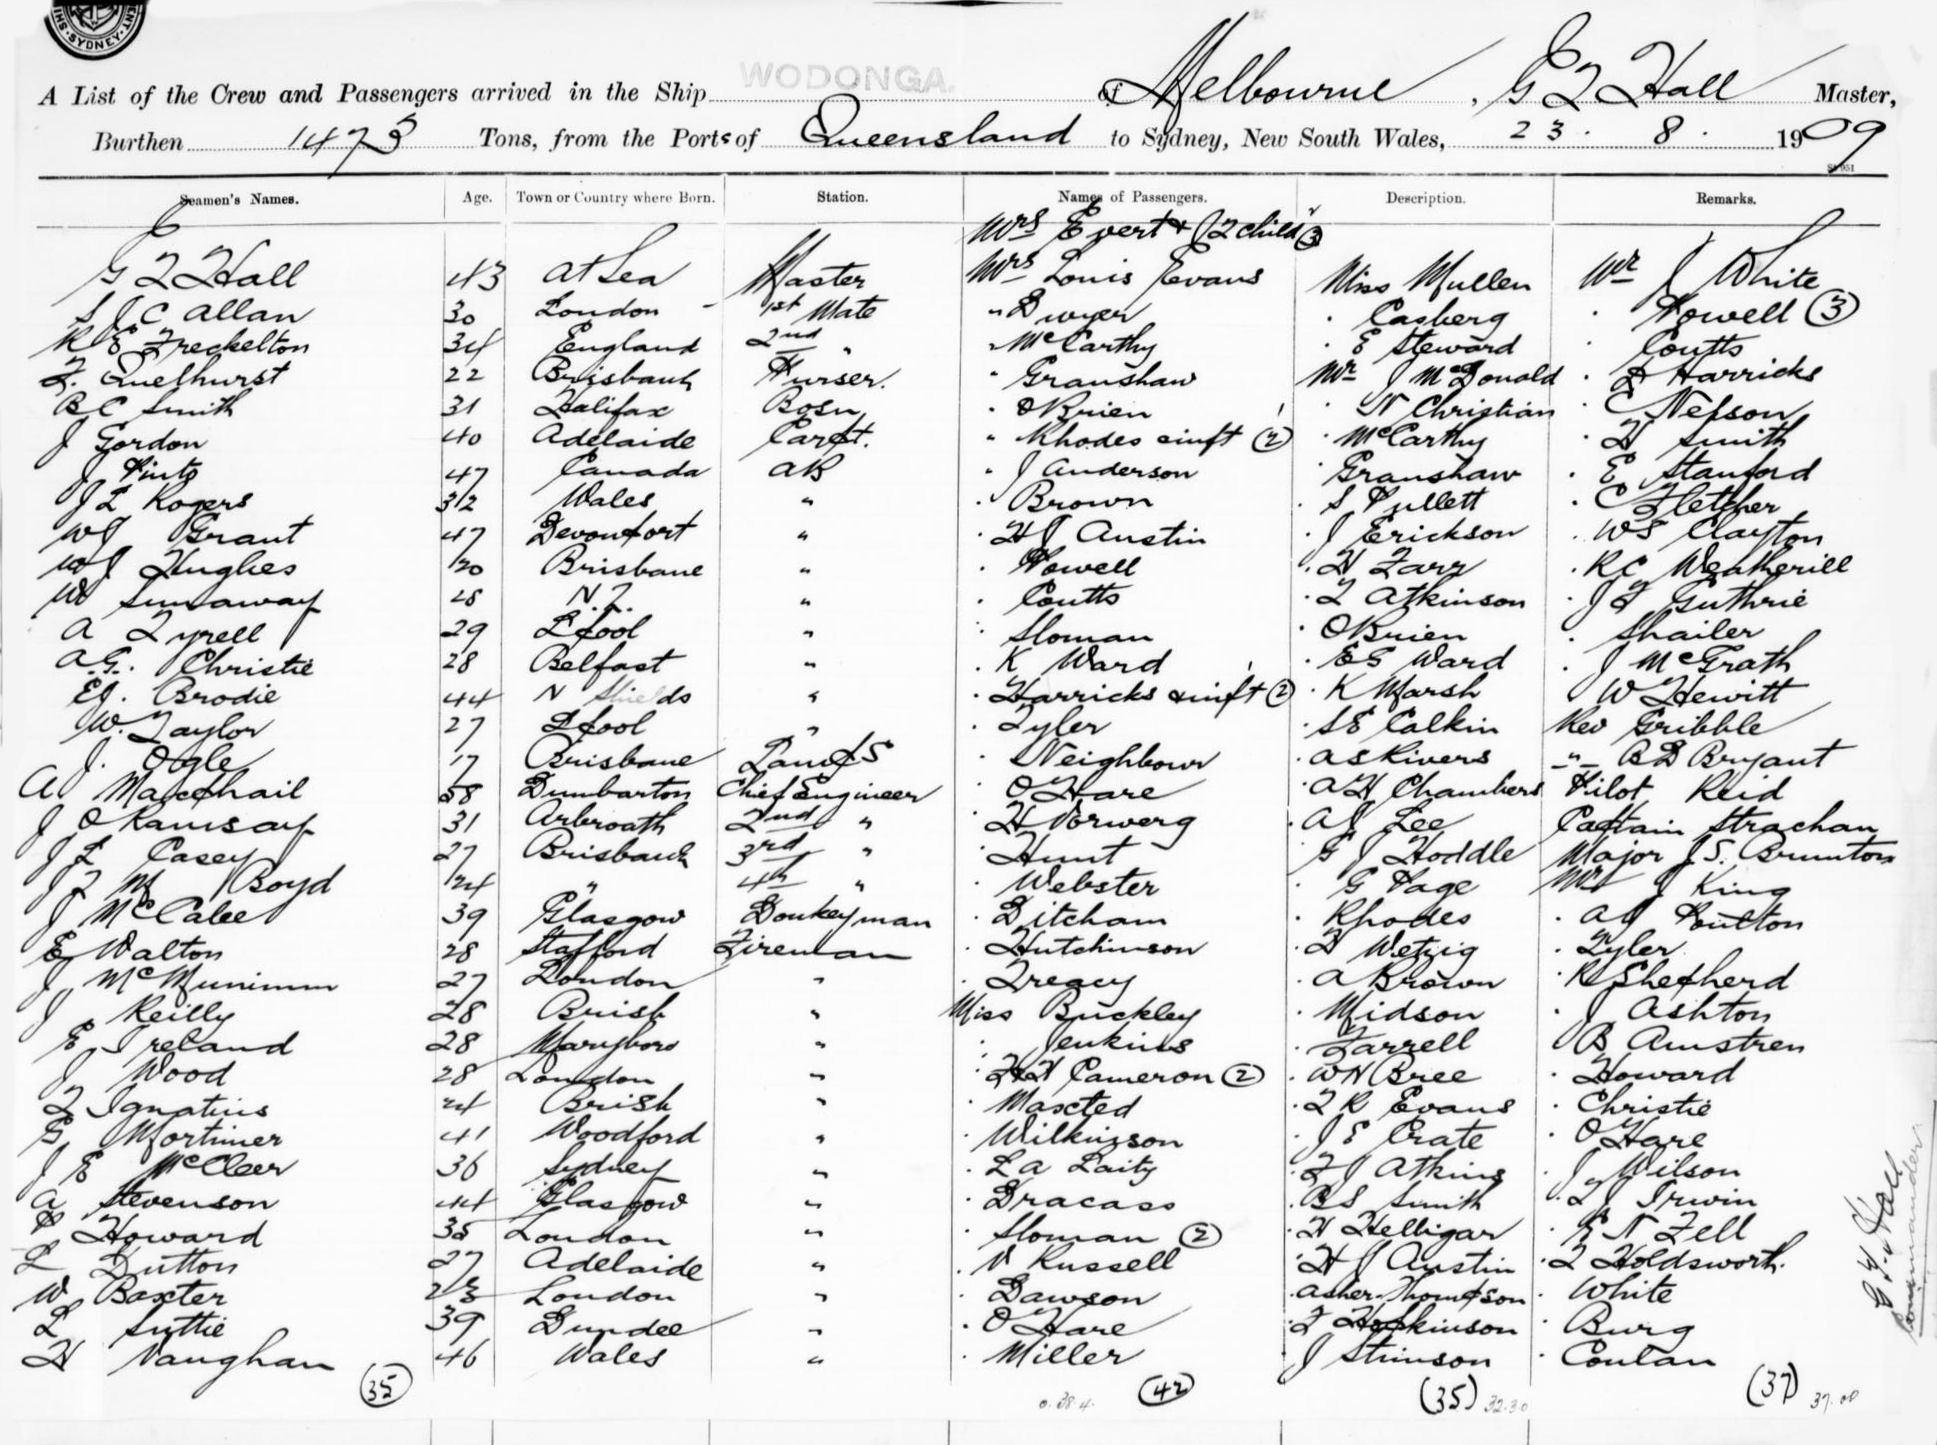 SYDNEY
WODONGA.
A List of the Crew and Passengers arrived in the Ship of Melbourne, G T Hall Master,
Burthen 1473 Tons, from the Ports of Queensland to Sydney, New South Wales, 23. 8. 1909
Seamen's Names. Age. Town or Country where Born. Station. Names of Passengers. Description. Remarks.
Mrs Evert + (2 child" (3)
G T Hall 43 At Sea Master Mrs Louis Evans Miss Mullen Mr J White
S J C Allan 30 London - 1st Mate " Dwyer . Casberg . Powell (3)
R E Freckelton 34 England 2nd " " McCarthy . E Steward . Coutts
22 Brisbane Purser. " Granshaw Mr J McDonald . Harricks
B C Smith 31 Halifax Bosn . O'Brien . N Christian . C Nelson
J Gordon 40 Adelaide Carpt. " Rhodes & inft (2) . McCarthy . H Smith
J Pinto 47 Canada AB " J Anderson . Granshaw . E Stanford
J L Rogers 32 Wales " . Brown . S Pullett . C Fletcher
W J Grant 47 Devonport " . H J Austin . J Erickson . W S Clayton
W J Hughes 20 Brisbane " . Powell . H Farr . R C Weatherill
W 28 N.Z. " . Coutts . T Atkinson . J F Guthrie
A Tyrell 29 Lpool " . Sloman . O'Brien . Shailer
A.G. Christie 28 Belfast " . K Ward . E G Ward . J McGrath
E J. Brodie 44 N Shields " . Harricks & inft (2) . K Marsh W Hewitt
W. Taylor 27 Lpool " . Tyler . S E Calkin Rev Gribble
J. Ogle 17 Brisbane Lamps . Neighbour . A S Rivers - " - B D Bryant
A Macphail 58 Dumbarton Chief Engineer . O'Hare . A H Chambers Pilot Reid
J O Ramsay 31 Arbroath 2nd " . H Vorwerg . A J Lee Captain Strachan
J L Casey 27 Brisbane 3rd " . Hunt . G J Hoddle Major J S. Brunton
J F M Boyd 24 " 4th " . Webster . G Page Mr J King
J McCabe 39 Glasgow Donkeyman . Ditcham . Rhodes . A J Poulton
E Walton 28 Stafford Fireman . Hutchinson . H Wetzig . Tyler
J McMunimm 27 London " . Treacy . A Brown . R Shepherd
J Reilly 28 Brisb " Miss Buckley . Midson . J Ashton
E Ireland 28 Maryboro " . Jenkins . Farrell . B Amstren
J Wood 28 London " . H H Cameron (2) . W N Bree . Howard
T Ignatius 24 Brisb " . Maxted . T R Evans . Christie
G Mortimer 41 Woodford " . Wilkinson . J E Crate . O'Hare
J E McCleer 36 Sydney " . L A Laity . F J Atkins . J Wilson
A Stevenson 44 Glasgow " . Dracass . B S Smith . T J Irwin
P Howard 35 London " . Sloman (2) . H Helligar . E N Fell
L Dutton 27 Adelaide " . V Russell . H J Austin . T Holdsworth.
W Baxter 23 London " . Dawson . Asher-Thompson . White
L Suttie 39 Dundee " . O'Hare . F Hopkinson . Burg
H Vaughan 46 Wales " . Miller . J Stimson . Conlan
(35) (42) (35) 32.3.0 (37)
G T. Hall
Commander